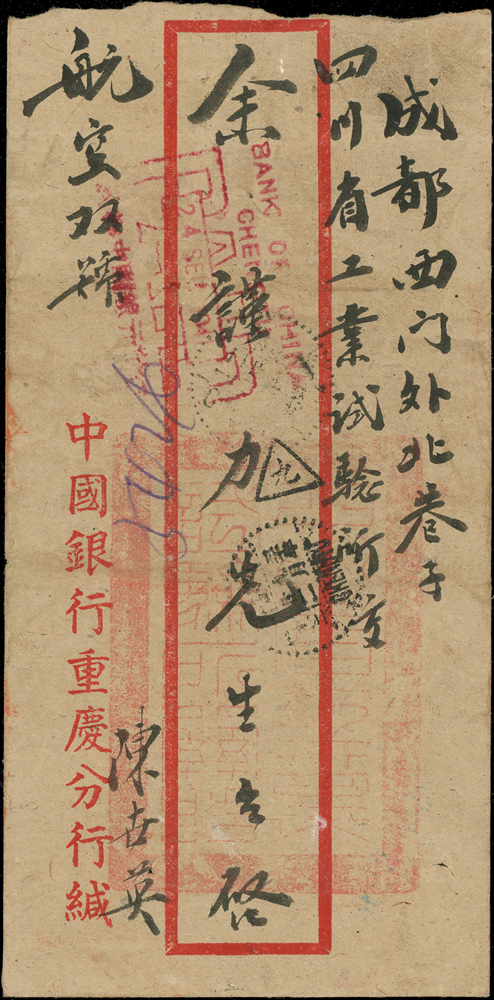 成都西门外北巷子
四川省工業試驗所交
余謹力先生台啓
航空双號
中國銀行重慶分行緘
陳世英
BANK OF CHINA
PAID
24 SEP
九